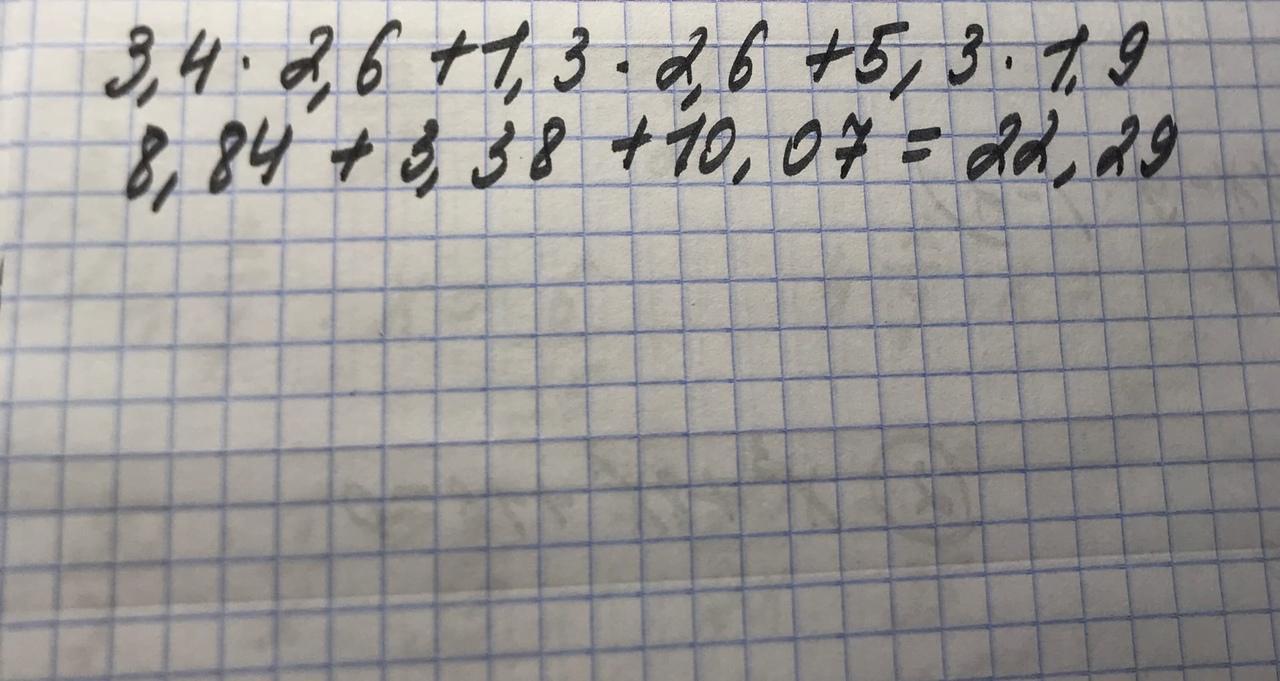 3,4 · 2,6 + 1,3 · 2,6 + 5,3 · 1,9
8,84 + 3,38 + 10,07 = 22,29